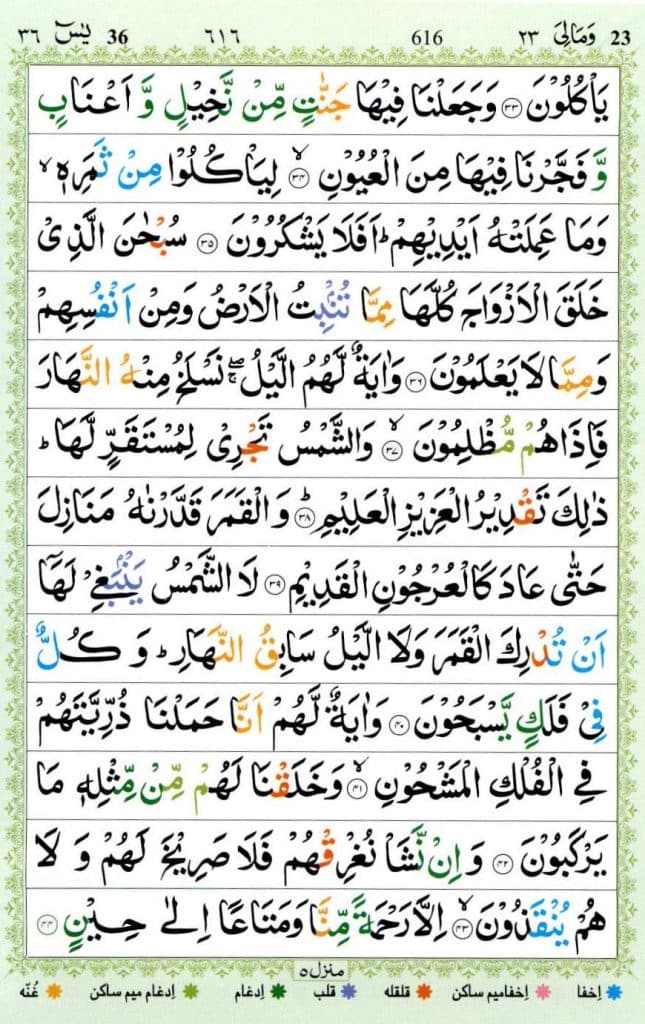 23 وَمَالِیَ ٢٣ 616 ٦١٦ 36 يٰسٓ ٣٦
يَاْكُلُوْنَ ﴿٣٣﴾ وَجَعَلْنَا فِيْهَا جَنّٰتٍ مِّنْ نَّخِيْلٍ وَّ اَعْنَابٍ
وَّ فَجَّرْنَا فِيْهَا مِنَ الْعُيُوْنِ ۙ﴿٣٤﴾ لِيَاْكُلُوْا مِنْ ثَمَرِهٖ ۙ
وَمَا عَمِلَتْهُ اَيْدِيْهِمْ ؕ اَفَلَا يَشْكُرُوْنَ ﴿٣٥﴾ سُبْحٰنَ الَّذِىْ
خَلَقَ الْاَزْوَاجَ كُلَّهَا مِمَّا تُنْۢبِتُ الْاَرْضُ وَمِنْ اَنْفُسِهِمْ
وَمِمَّا لَا يَعْلَمُوْنَ ﴿٣٦﴾ وَاٰيَةٌ لَّهُمُ الَّيْلُ ۖۚ نَسْلَخُ مِنْهُ النَّهَارَ
فَاِذَا هُمْ مُّظْلِمُوْنَ ۙ﴿٣٧﴾ وَالشَّمْسُ تَجْرِىْ لِمُسْتَقَرٍّ لَّهَا ؕ
ذٰلِكَ تَقْدِيْرُ الْعَزِيْزِ الْعَلِيْمِ ؕ﴿٣٨﴾ وَ الْقَمَرَ قَدَّرْنٰهُ مَنَازِلَ
حَتّٰى عَادَ كَالْعُرْجُوْنِ الْقَدِيْمِ ﴿٣٩﴾ لَا الشَّمْسُ يَنْۢبَغِىْ لَهَاۤ
اَنْ تُدْرِكَ الْقَمَرَ وَلَا الَّيْلُ سَابِقُ النَّهَارِ ؕ وَ كُلٌّ
فِىْ فَلَكٍ يَّسْبَحُوْنَ ﴿٤٠﴾ وَاٰيَةٌ لَّهُمْ اَنَّا حَمَلْنَا ذُرِّيَّتَهُمْ
فِى الْفُلْكِ الْمَشْحُوْنِ ۙ﴿٤١﴾ وَخَلَقْنَا لَهُمْ مِّنْ مِّثْلِهٖ مَا
يَرْكَبُوْنَ ﴿٤٢﴾ وَ اِنْ نَّشَاْ نُغْرِقْهُمْ فَلَا صَرِيْخَ لَهُمْ وَ لَا
هُمْ يُنْقَذُوْنَ ۙ﴿٤٣﴾ اِلَّا رَحْمَةً مِّنَّا وَمَتَاعًا اِلٰى حِيْنٍ ﴿٤٤﴾
منزل ٥
اِخفا اِخفامیم ساکن قلقله قلب اِدغام اِدغام میم ساکن غُنّه